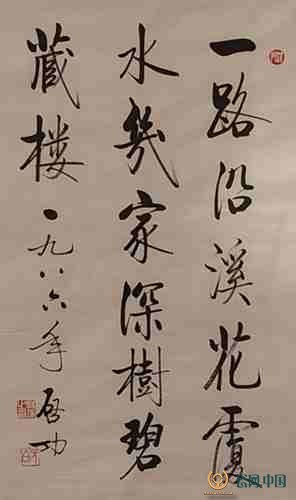 一路沿溪花覆
水幾家深樹碧
藏楼
一九八六年 启功
中国